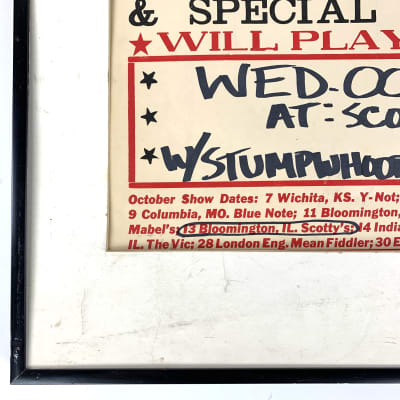 & SPECIAL
★WILL PLAY
★ WED-OC
★ AT: SCO
★ W/STUMPWHOO
October Show Dates: 7 Wichita, KS. Y-Not;
9 Columbia, MO. Blue Note; 11 Bloomington,
Mabel's; 13 Bloomington, IL. Scotty's; 14 India
IL. The Vic; 28 London Eng. Mean Fiddler; 30 E